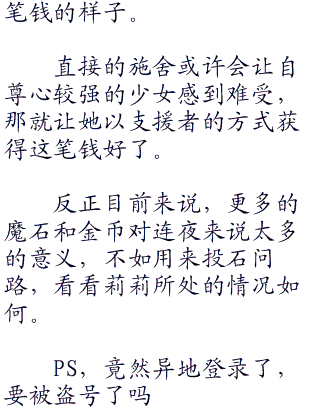 笔钱的样子。
直接的施舍或许会让自
尊心较强的少女感到难受，
那就让她以支援者的方式获
得这笔钱好了。
反正目前来说，更多的
魔石和金币对连夜来说太多
的意义，不如用来投石问
路，看看莉莉所处的情况如
何。
PS，竟然异地登录了，
要被盗号了吗